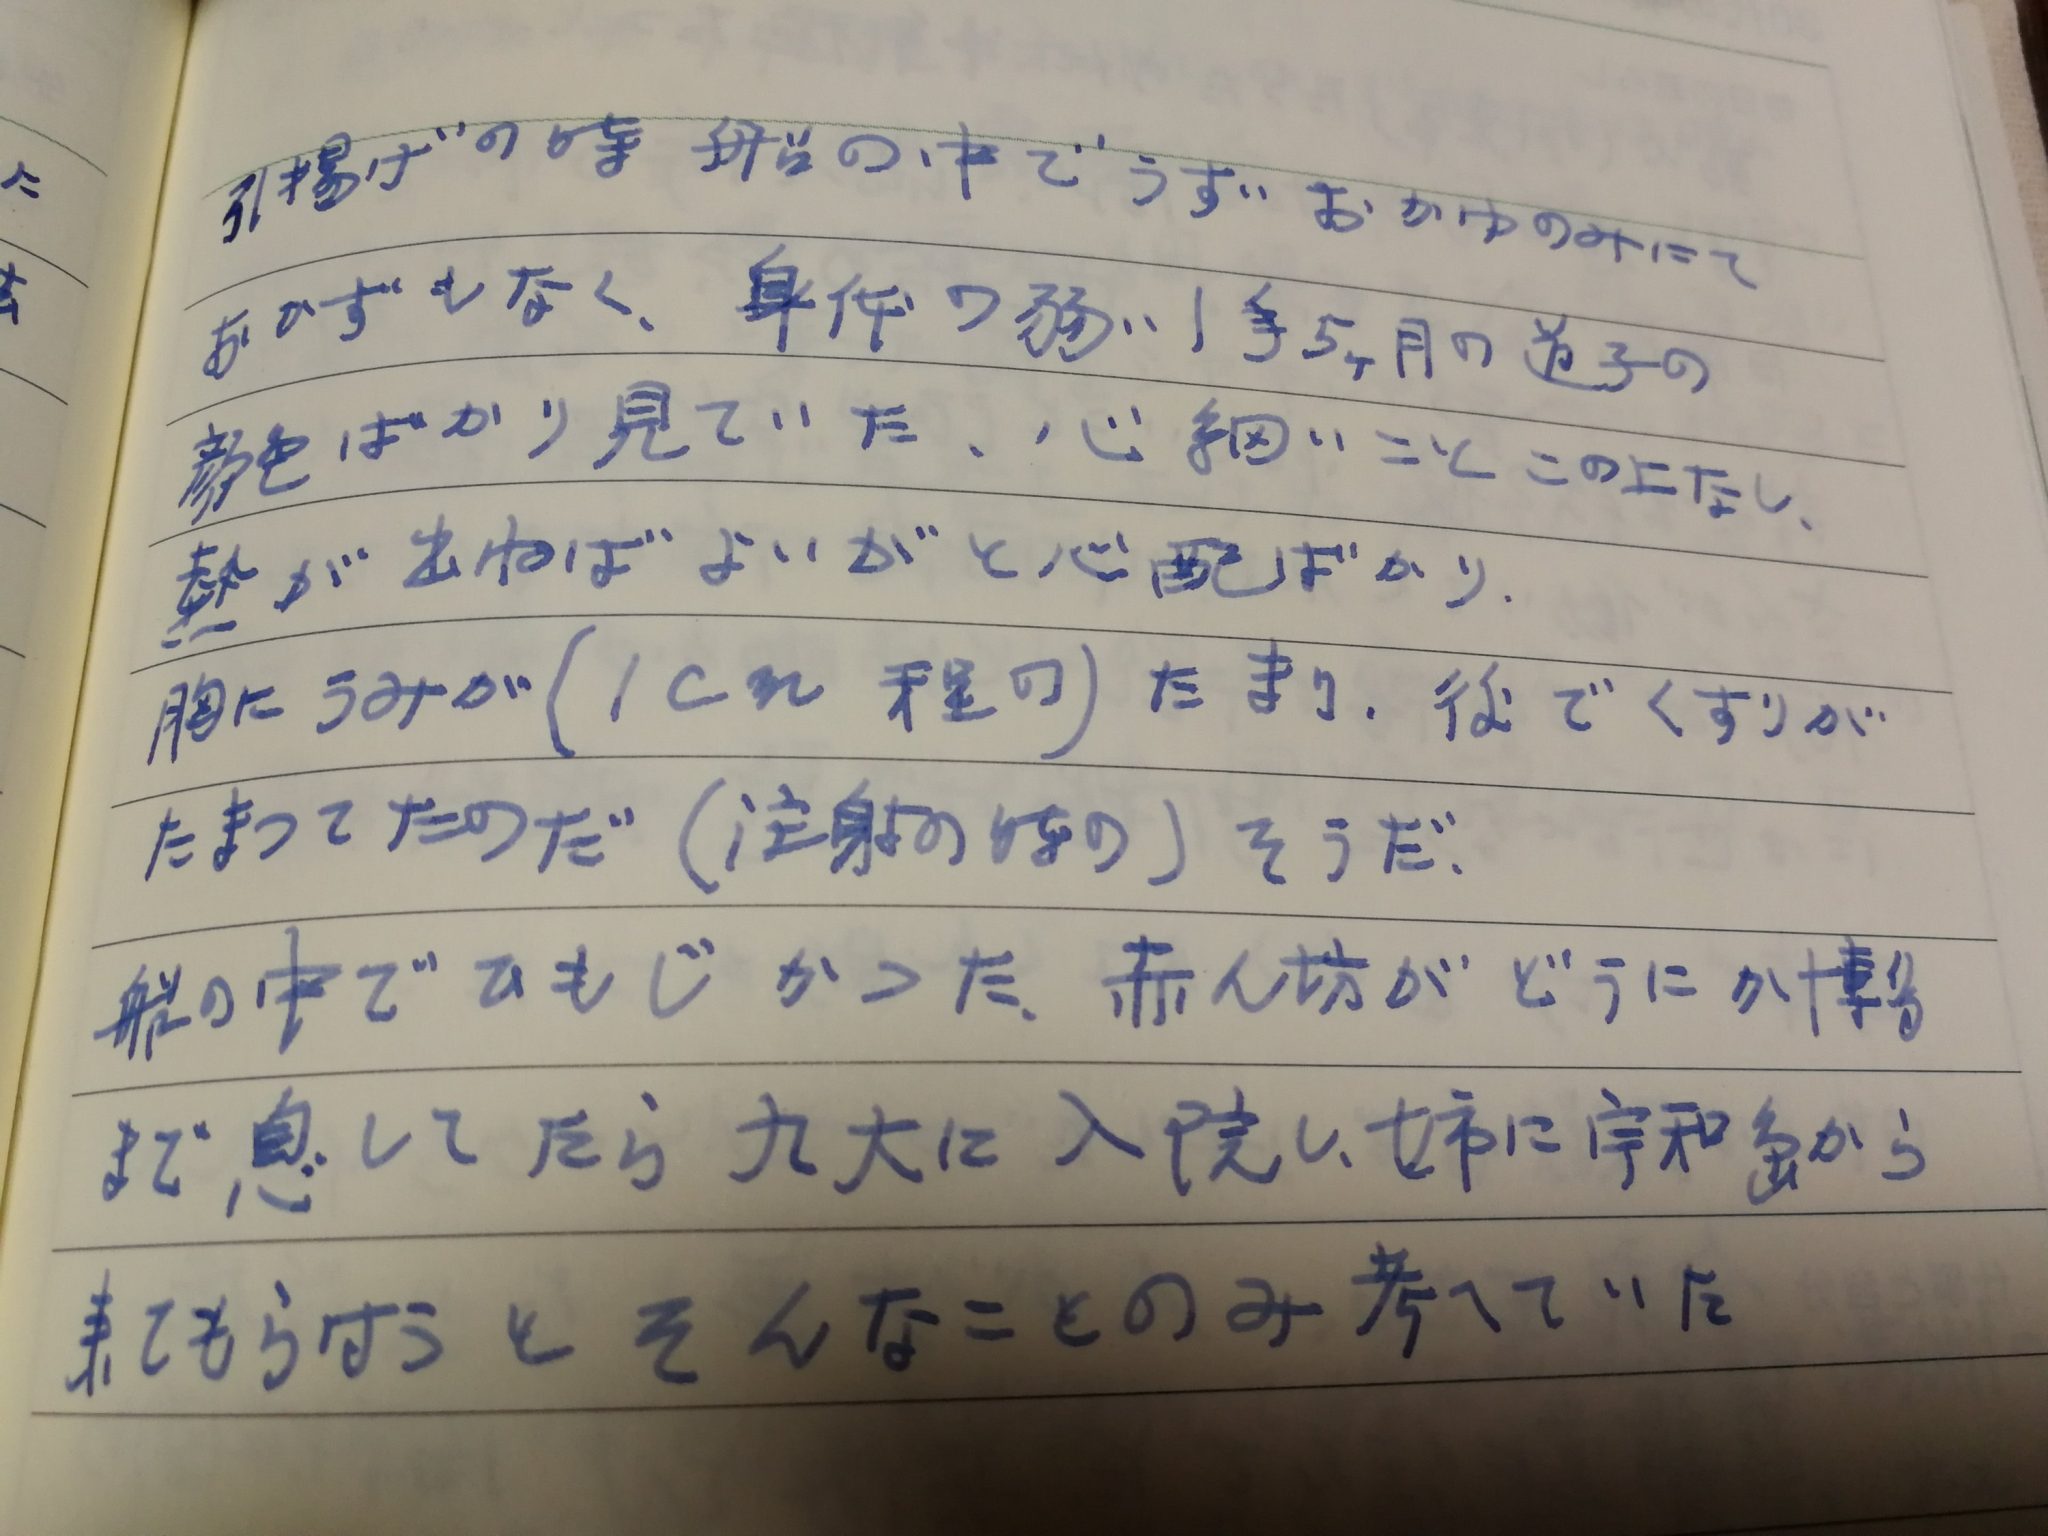 引揚げの時 船の中でうずいおかゆのみにて
おかずもなく、身体の弱い1年5ヶ月の道子の
顔色ばかり見ていた、心細いことこの上なし、
熱が出ねばよいがと心配ばかり.
胸にうみが(1cm程の)たまり.後でくすりが
たまつてたのだ(注射の時の)そうだ、
船の中でひもじかつた、赤ん坊がどうにか博多
まで息してたら九大に入院し、姉に宇和島から
来てもらはうとそんなことのみ考へていた